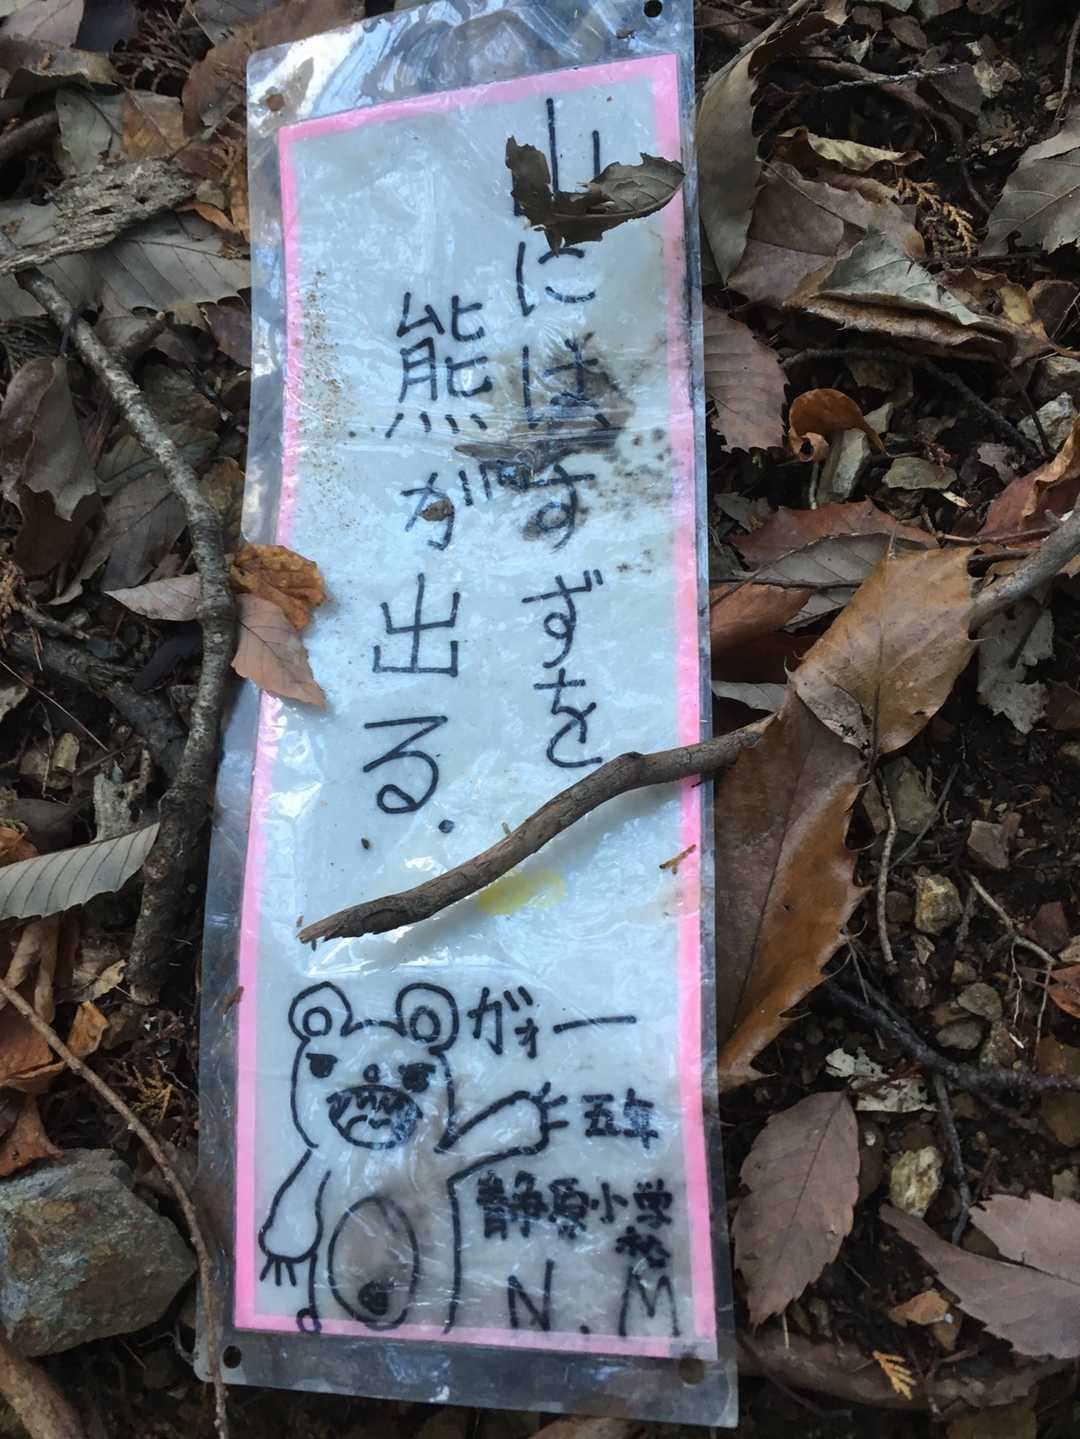 山にはすずを
熊が出る.
ガォー
五年
静原小学校
N.M